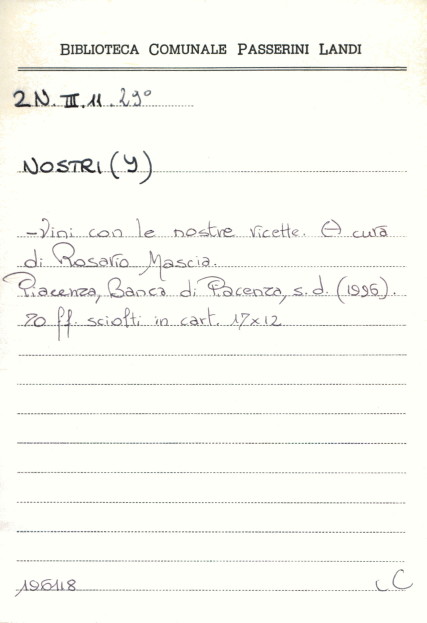 BIBLIOTECA COMUNALE PASSERINI LANDI
2N. III. 11. 29°
NOSTRI (I)
- Vini con le nostre ricette. A cura
di Rosario Mascia.
Piacenza, Banca di Piacenza, s.d. (1995).
70 ff. sciolti in cart. 17x12
195118
C